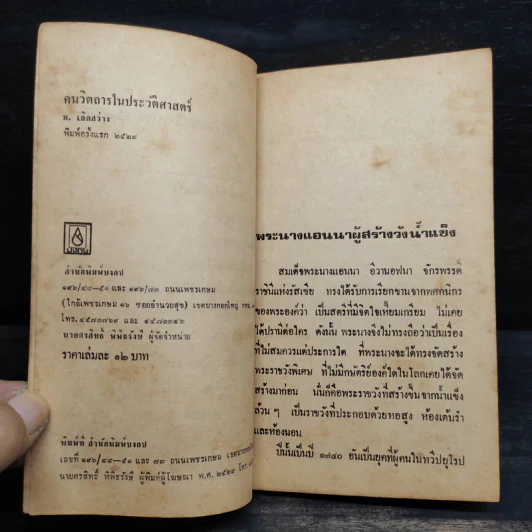 คนวิตถารในประวัติศาสตร์
ม. เลิศสว่าง
พิมพ์ครั้งแรก ๒๕๒๙
มงคล
สำนักพิมพ์มงคล
๑๙๖/๔๔–๕๑ และ ๑๙๖/๗๓ ถนนเพชรเกษม
(ใกล้เพชรเกษม ๑๖ ซอยอำนวยสุข) เขตบางกอกใหญ่ กทม.
โทร. ๔๕๗๐๗๖๙ และ ๔๕๗๐๓๔๒
นายศรสิทธิ์ พิพิธรังษี ผู้จัดจำหน่าย
ราคาเล่มละ ๑๒ บาท
พิมพ์ที่ สำนักพิมพ์มงคล
เลขที่ ๑๙๖/๔๔–๕๑ และ ๗๓ ถนนเพชรเกษม เขตบางกอกใหญ่
นายศรสิทธิ์ พิพิธรังษี ผู้พิมพ์ผู้โฆษณา พ.ศ. ๒๕๒๙ โทร.
พระนางแอนนาผู้สร้างวังน้ำแข็ง
สมเด็จพระนางแอนนา อิวานอฟนา จักรพรรดิ์
ราชินีแห่งรัสเซีย ทรงได้รับการเรียกขานจากพศกนิกร
ของพระองค์ว่า เป็นสตรีที่มีจิตใจเหี้ยมเกรียม ไม่เคย
ได้ปรานีต่อใคร ดังนั้น พระนางจึงไม่ทรงถือว่าเป็นเรื่อง
ที่ไม่สมควรแต่ประการใด ที่พระนางจะได้ทรงจัดสร้าง
พระราชวังพิเศษ ที่ไม่มีกษัตริย์องค์ใดในโลกเคยได้จัด
สร้างมาก่อน นั่นก็คือพระราชวังที่สร้างขึ้นจากน้ำแข็ง
ล้วน ๆ เป็นราชวังที่ประกอบด้วยหอสูง ห้องเต้นรำ
และห้องนอน
ปีนั้นเป็นปี ๑๗๔๐ อันเป็นยุคที่ผู้คนในทวีปยุโรป